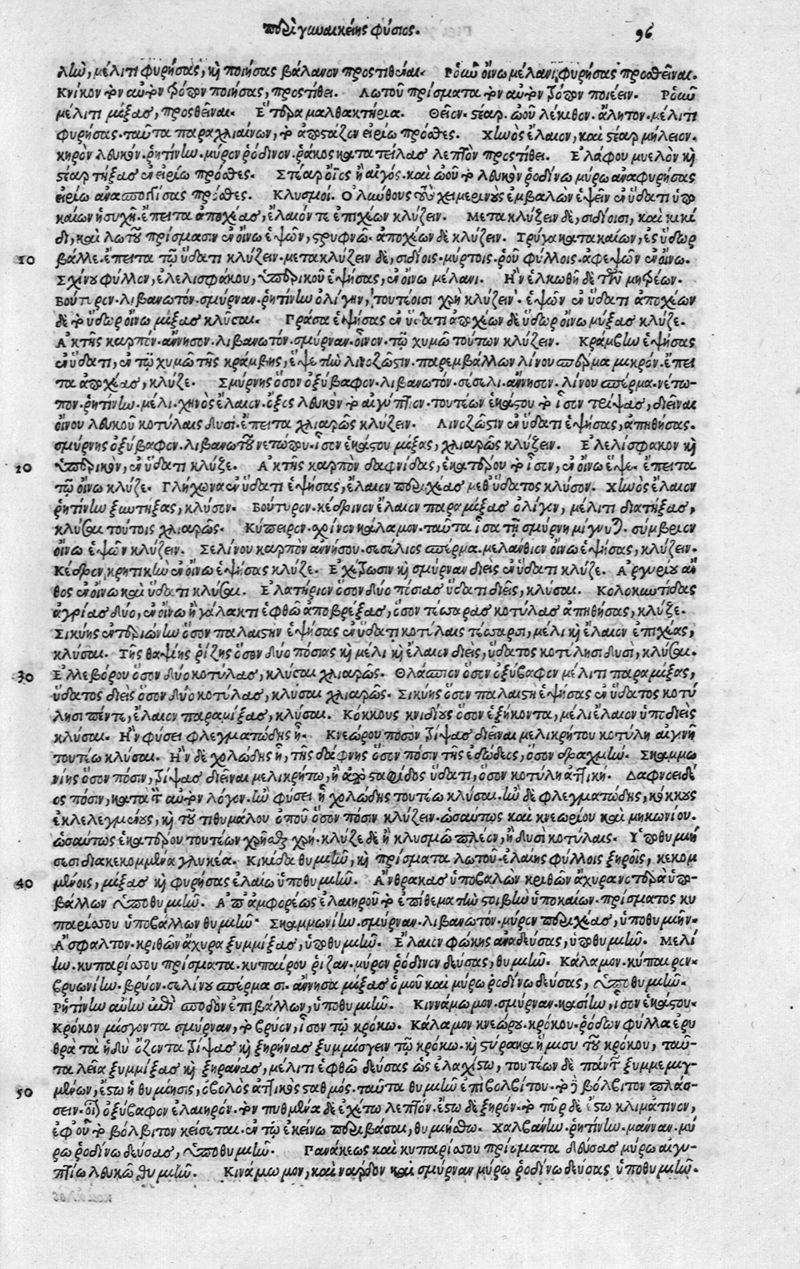 περὶ γυναικείης φύσιος. 96
λίῳ, μέλιτι φυρήσας, καὶ ποιήσας βάλανον προστιθέναι. Ῥοιὴν οἴνῳ μέλανι φυρήσας προσθεῖναι.
Κνίκον τὸν αὐτὸν τρόπον ποιήσας, προστίθει. Λωτοῦ πρίσματα τὸν αὐτὸν τρόπον ποιέειν.
μέλιτι μίξας, προσθεῖναι. Ἕτερα μαλθακτήρια. Θεῖον. στέαρ. ὠοῦ λέκιθον. ἄλητον. μέλιτι
φυρήσας ταῦτα παραχλιαίνων, καὶ ἀποστάζον εἰρίῳ πρόσθες. Χηνὸς ἔλαιον, καὶ στέαρ μήλειον.
κηρὸν λευκὸν. ῥητίνην. μύρον ῥόδινον. ῥάκος κατατείλας λεπτὸν προστίθει. Ἐλάφου μυελὸν καὶ
στέαρ τήξας ἐν εἰρίῳ πρόσθες. Στέαρ οἰὸς ἢ αἰγὸς. καὶ ὠοῦ τὸ λευκὸν ῥοδίνῳ μύρῳ ἀναφυρήσας
εἰρίῳ πρόσθες. Κλυσμοί. Ὀλύνθους τοὺς χειμερινοὺς ἐμβαλὼν ἑψεῖν ἐν ὕδατι ὑπο
καίων ἡσυχῇ. ἔπειτα ἀποχέας, ἔλαιόν τε ἐπιχέων κλύζειν. Μετακλύζειν δὲ, σιδίοισι, καὶ κικί
δι, καὶ λωτοῦ πρίσμασιν ἐν οἴνῳ ἑψῶν, στρυφνῷ. ἀποχέων δὲ κλύζειν. Τρύγα κατακαίων, ἐς ὕδωρ
10 βάλλε. ἔπειτα τῷ ὕδατι κλύζειν. μετακλύζειν δὲ, σιδίοις. μύρτοις. ῥοῦ φύλλοις. ἀφεψῶν ἐν οἴνῳ.
Σχίνου φύλλον, ἐλελισφάκου, ὑπερικοῦ ἑψήσας, ἐν οἴνῳ μέλανι. Ἢν ἑλκωθῇ δὲ τῶν μητρέων.
βούτυρον. λιβανωτόν. σμύρναν. ῥητίνην ὀλίγην, τουτέοισι χρὴ κλύζειν. ἑψῶν ἐν ὕδατι ἀποχέων
δὲ τὸ ὕδωρ οἴνῳ μίξας κλῦσαι. Πράσα ἑψήσας ἐν ὕδατι ἀποχέων δὲ ὕδωρ οἴνῳ μίξας κλύζε.
Ἀκτῆς καρπόν. ἄννησον. λιβανωτόν. σμύρναν. οἶνον. τῷ χυμῷ τούτων κλύζειν. Κράμβην ἑψήσας
ἐν ὕδατι, ἐν τῷ χυμῷ τῆς κράμβης, ἕψε τὴν λινόζωστιν. παρεμβάλλων λίνου σπέρμα μικρόν. ἔπει
τα ἀποχέας, κλύζε. Σμύρνης ὅσον ὀξύβαφον. λιβανωτόν. σέσελι. ἄννησον. λίνου σπέρμα. νέτω
πον. ῥητίνην. μέλι. χηνὸς ἔλαιον. ὄξος λευκὸν τὸ αἰγύπτιον. τουτέων ἑκάστου τὸ ἴσον τρίψας, διεῖναι
οἴνου λευκοῦ κοτύλαις δυσί. ἔπειτα χλιαρῶς κλύζειν. Λινόζωστιν ἐν ὕδατι ἑψήσας, ἀπηθήσας.
σμύρνης ὀξύβαφον. λιβανωτοῦ νετώπου. ἴσον ἑκάστου μίξας, χλιαρῶς κλύζειν. Ἐλελίσφακον καὶ
20 ὑπερικὸν, ἐν ὕδατι κλύζε. Ἀκτῆς καρπὸν δαφνίδας, ἑκατέρου τὸ ἴσον, ἐν οἴνῳ ἕψε. ἔπειτα
τῷ οἴνῳ κλύζε. Γλήχωνα ἐν ὕδατι ἑψήσας, ἔλαιον περιχέας μεθ' ὕδατος κλῦσον. Χηνὸς ἔλαιον
ῥητίνην ξυντήξας, κλῦσον. Βούτυρον. κέδρινον ἔλαιον παραμίξας ὀλίγον, μέλιτι διατήξας,
κλῦσαι τούτοις χλιαρῶς. Κύπειρον. σχίνον κάλαμον. ταῦτα ἴσα τῇ σμύρνῃ μίγνυται. σύμβριον
οἴνῳ ἑψῶν κλύζειν. Σελίνου καρπὸν ἀννήσου. σεσέλιος σπέρμα. μελάνθιον οἴνῳ ἑψήσας, κλύζειν.
Κέδρον κρητικὴν ἐν οἴνῳ ἑψήσας κλύζε. Ἐχέζωον καὶ σμύρναν διεὶς ἐν ὕδατι κλύζε. Ἀργυρίου ἄν
θος ἐν οἴνῳ καὶ ὕδατι κλῦσαι. Ἐλατήριον ὅσον δύο πόσιας ὕδατι διεὶς, κλῦσαι. Κολοκυντίδας
ἀγρίας δύο, ἐν οἴνῳ ἢ γάλακτι ἑφθῷ ἀποβρέξας, ὅσον τέσσαρας κοτύλας ἀπηθήσας, κλύζε.
Σικύης ἐντεριώνην ὅσον παλαιστὴν ἑψήσας ἐν ὕδατι κοτύλαις τέσσαρσι, μέλι καὶ ἔλαιον ἐπιχέας,
κλῦσαι. Τῆς θαψίης ῥίζης ὅσον δύο πόσιας καὶ μέλι καὶ ἔλαιον διεὶς, ὕδατος κοτύλῃσι δυσὶ, κλῦσαι.
30 Ἐλλεβόρου ὅσον δύο κοτύλας, κλῦσαι χλιαρῶς. Θλάσπιον ὅσον ὀξύβαφον μέλιτι παραμίξας,
ὕδατος διεὶς ὅσον δύο κοτύλας, κλῦσαι χλιαρῶς. Σικύης ὅσον παλαιστὴ ἑψήσας ἐν ὕδατος κοτύ
λῃσι πέντε, ἔλαιον παραμίξας, κλῦσαι. Κόκκους κνιδίους ὅσον ἑξήκοντα, μέλι ἔλαιον ὑποδιεὶς
κλῦσαι. Ἢν φύσει φλεγματώδης ᾖ. Κνεώρου πόσιν τρίψας διεῖναι μελικρήτου κοτύλῃ αἰγινῃ
τουτέῳ κλῦσαι. Ἢν δὲ χολώδης ᾖ, τῆς δάφνης ὅσον πόσιν τῆς εὐώδεος, ὅσον δραχμὴν. Σκαμμω
νίης ὅσον πόσιν, τρίψας διεῖναι μελικρήτῳ, ἢ ἀπὸ σταφίδος ὕδατι, ὅσον κοτύλῃ ἀττικῇ. Δαφνοειδέ
ος πόσιν, κατὰ τὸν αὐτὸν λόγον. ἢν φύσει ᾖ χολώδης τουτέῳ κλῦσαι. ἢν δὲ φλεγματώδης, κόκκους
ἐκλελεγμένους, καὶ τοῦ τιθυμάλου ὀποῦ ὅσον πόσιν κλύζειν. ὡσαύτως καὶ κνεωρίου καὶ μηκωνίου.
ὡσαύτως ἑκατέρου τουτέων χρῆσθαι χρή. κλύζε δὲ ᾗ κλυσμῷ πλέον, ἢ δυσὶ κοτύλαις. Ὑποθυμιή
σεσι διακεκομμένα γλυκέα. Κικίδα θυμιῆν, καὶ πρίσματα λωτοῦ. ἐλαίης φύλλοις ξηροῖς, κεκομ
40 μένοις, μίξας καὶ φυρήσας ἐλαίῳ ὑποθυμιῆν. Ἄνθρακας ὑποβαλὼν κριθῶν ἄχυρα νοτερὰ ὑπο
βάλλων ὑποθυμιῆν. Ἀπ' ἀμφορέως ἐλαιηροῦ τὸ ἐπίθεμα τὴν στοιβὴν ὑποκαίων. πρίσματος κυ
παρίσσου ὑποβάλλων θυμιῆν. Σκαμμωνίην. σμύρναν. λιβανωτόν. μύρον περιχέας, ὑποθυμιῆν.
Ἄσφαλτον. κριθῶν ἄχυρα ξυμμίξας, ὑποθυμιῆν. Ἔλαιον φώκης ἀναδεύσας, ὑποθυμιῆν. Μελί
ην. κυπαρίσσου πρίσματα. κυπαίρου ῥίζαν. μύρον ῥόδινον δεύσας, θυμιῆν. Κάλαμον. κύπαιρον.
βρυωνίην. βρύον. σελίνου σπέρμα. ἀννήσου μίξας ὁμοῦ καὶ μύρῳ ῥοδίνῳ δεύσας, ὑποθυμιῆν.
Ῥητίνην αὐτὴν ἐπὶ σποδὸν ἐπιβάλλων, ὑποθυμιῆν. Κιννάμωμον. σμύρναν. κασίην, ἴσον ἑκάστου.
Κρόκον μίσγοντα σμύρναν, τὸ θρύον, ἴσον τῷ κρόκῳ. Κάλαμον. κνέωρον. κρόκου. ῥόδων φύλλα ἐρυ
θρὰ τὰ ἡδὺ ὄζοντα τρίψας καὶ ξηρήνας ξυμμίσγειν τῷ κρόκῳ. καὶ στύρακα ἥμισυ τοῦ κρόκου, ταῦ
τα λεῖα ξυμμίξας καὶ ξηρήνας, μέλιτι ἑφθῷ δεύσας ὡς ἐλαχίστῳ, τουτέων δὲ πάντων ξυμμεμιγ
50 μένων, ἔστω ἡ θυμίησις, ὀβολὸς ἀττικὸς σταθμός. ταῦτα θυμιῆν ἐπὶ βολβίτου. τὸ δὲ βόλβιτον πλάσ
σειν. οἷον ὀξύβαφον ἐλαιηρόν. τὸν πυθμένα δὲ ἐχέτω λεπτόν. ἔστω δὲ ξηρόν. τὸ πῦρ δὲ ἔστω κλιμάτινον,
ἐφ' οὗ τὸ βόλβιτον κείσεται. ἐν τῷ ἐκείνῳ περιβᾶσαι, θυμιήσθω. Χαλβάνην. ῥητίνην. μάνναν. μύ
ρῳ ῥοδίνῳ δεύσας, ὑποθυμιῆν. Πανάκεως καὶ κυπαρίσσου πρίσματα δεύσας μύρῳ αἰγυ
πτίῳ λευκῷ θυμιῆν. Κινάμωμον, καὶ νάρδον καὶ σμύρναν μύρῳ ῥοδίνῳ δεύσας ὑποθυμιῆν.